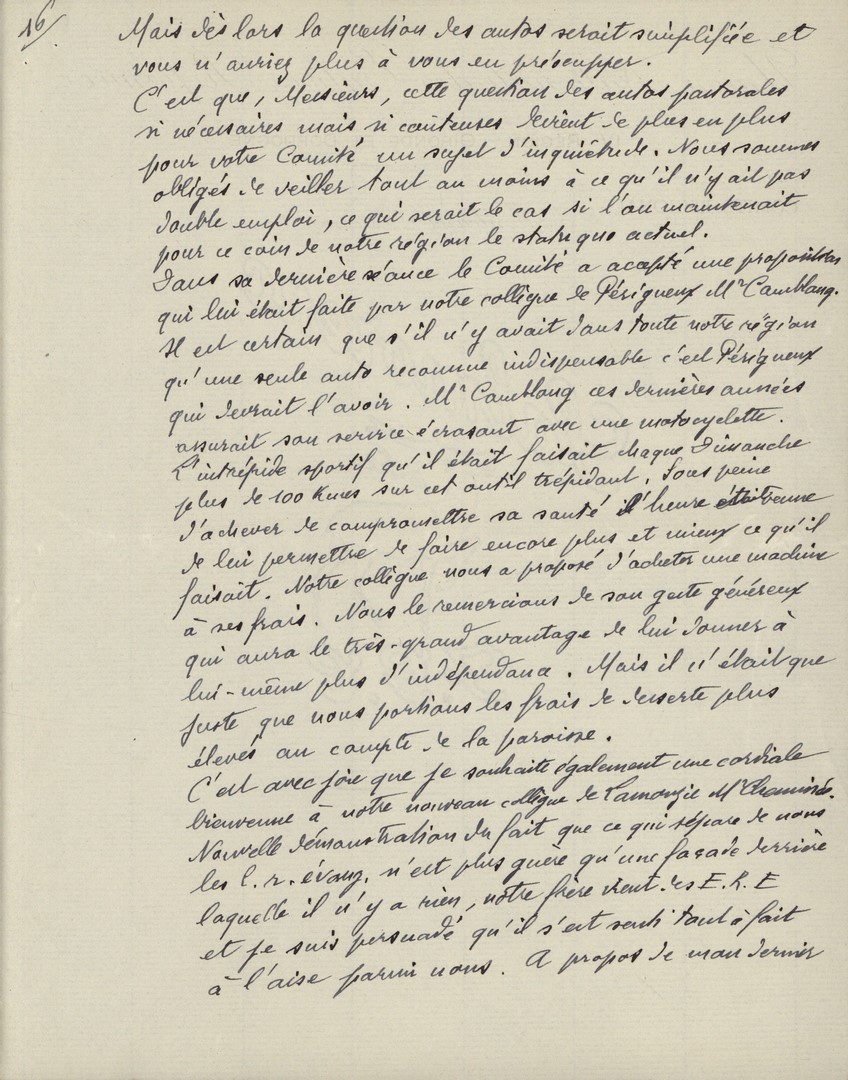 16/
Mais dès lors la question des autos serait simplifiée et
vous n'auriez plus à vous en préocupper.
C'est que, Messieurs, cette question des autos pastorales
si nécessaires mais si coûteuses devient de plus en plus
pour votre Comité un sujet d'inquiétude. Nous sommes
obligés de veiller tout au moins à ce qu'il n'y ait pas
double emploi, ce qui serait le cas si l'on maintenait
pour ce coin de notre région le statu quo actuel.
Dans sa dernière séance le Comité a accepté une proposition
qui lui était faite par notre collègue de Périgueux Mr Camblong.
Il est certain que s'il n'y avait dans toute notre région
qu'une seule auto reconnue indispensable c'est Périgueux
qui devrait l'avoir. Mr Camblong ces dernières années
assurait son service écrasant avec une motocyclette.
L'intrépide sportif qu'il était faisait chaque Dimanche
plus de 100 Kms sur cet outil trépidant. Sous peine
d'achever de compromettre sa santé l'heure était venue
de lui permettre de faire encore plus et mieux ce qu'il
faisait. Notre collègue nous a proposé d'acheter une machine
à ses frais. Nous le remercions de son geste généreux
qui aura le très-grand avantage de lui donner à
lui-même plus d'indépendance. Mais il n'était que
juste que nous portions les frais de desserte plus
élevés au compte de la paroisse.
C'est avec joie que je souhaite également une cordiale
bienvenue à notre nouveau collègue de Lamonzie Mr Cheminée.
Nouvelle démonstration du fait que ce qui sépare de nous
les l. r. évang. n'est plus guère qu'une façade derrière
laquelle il n'y a rien, notre frère vient des E. R. E
et je suis persuadé qu'il s'est senti tout à fait
à l'aise parmi nous. A propos de mon dernier